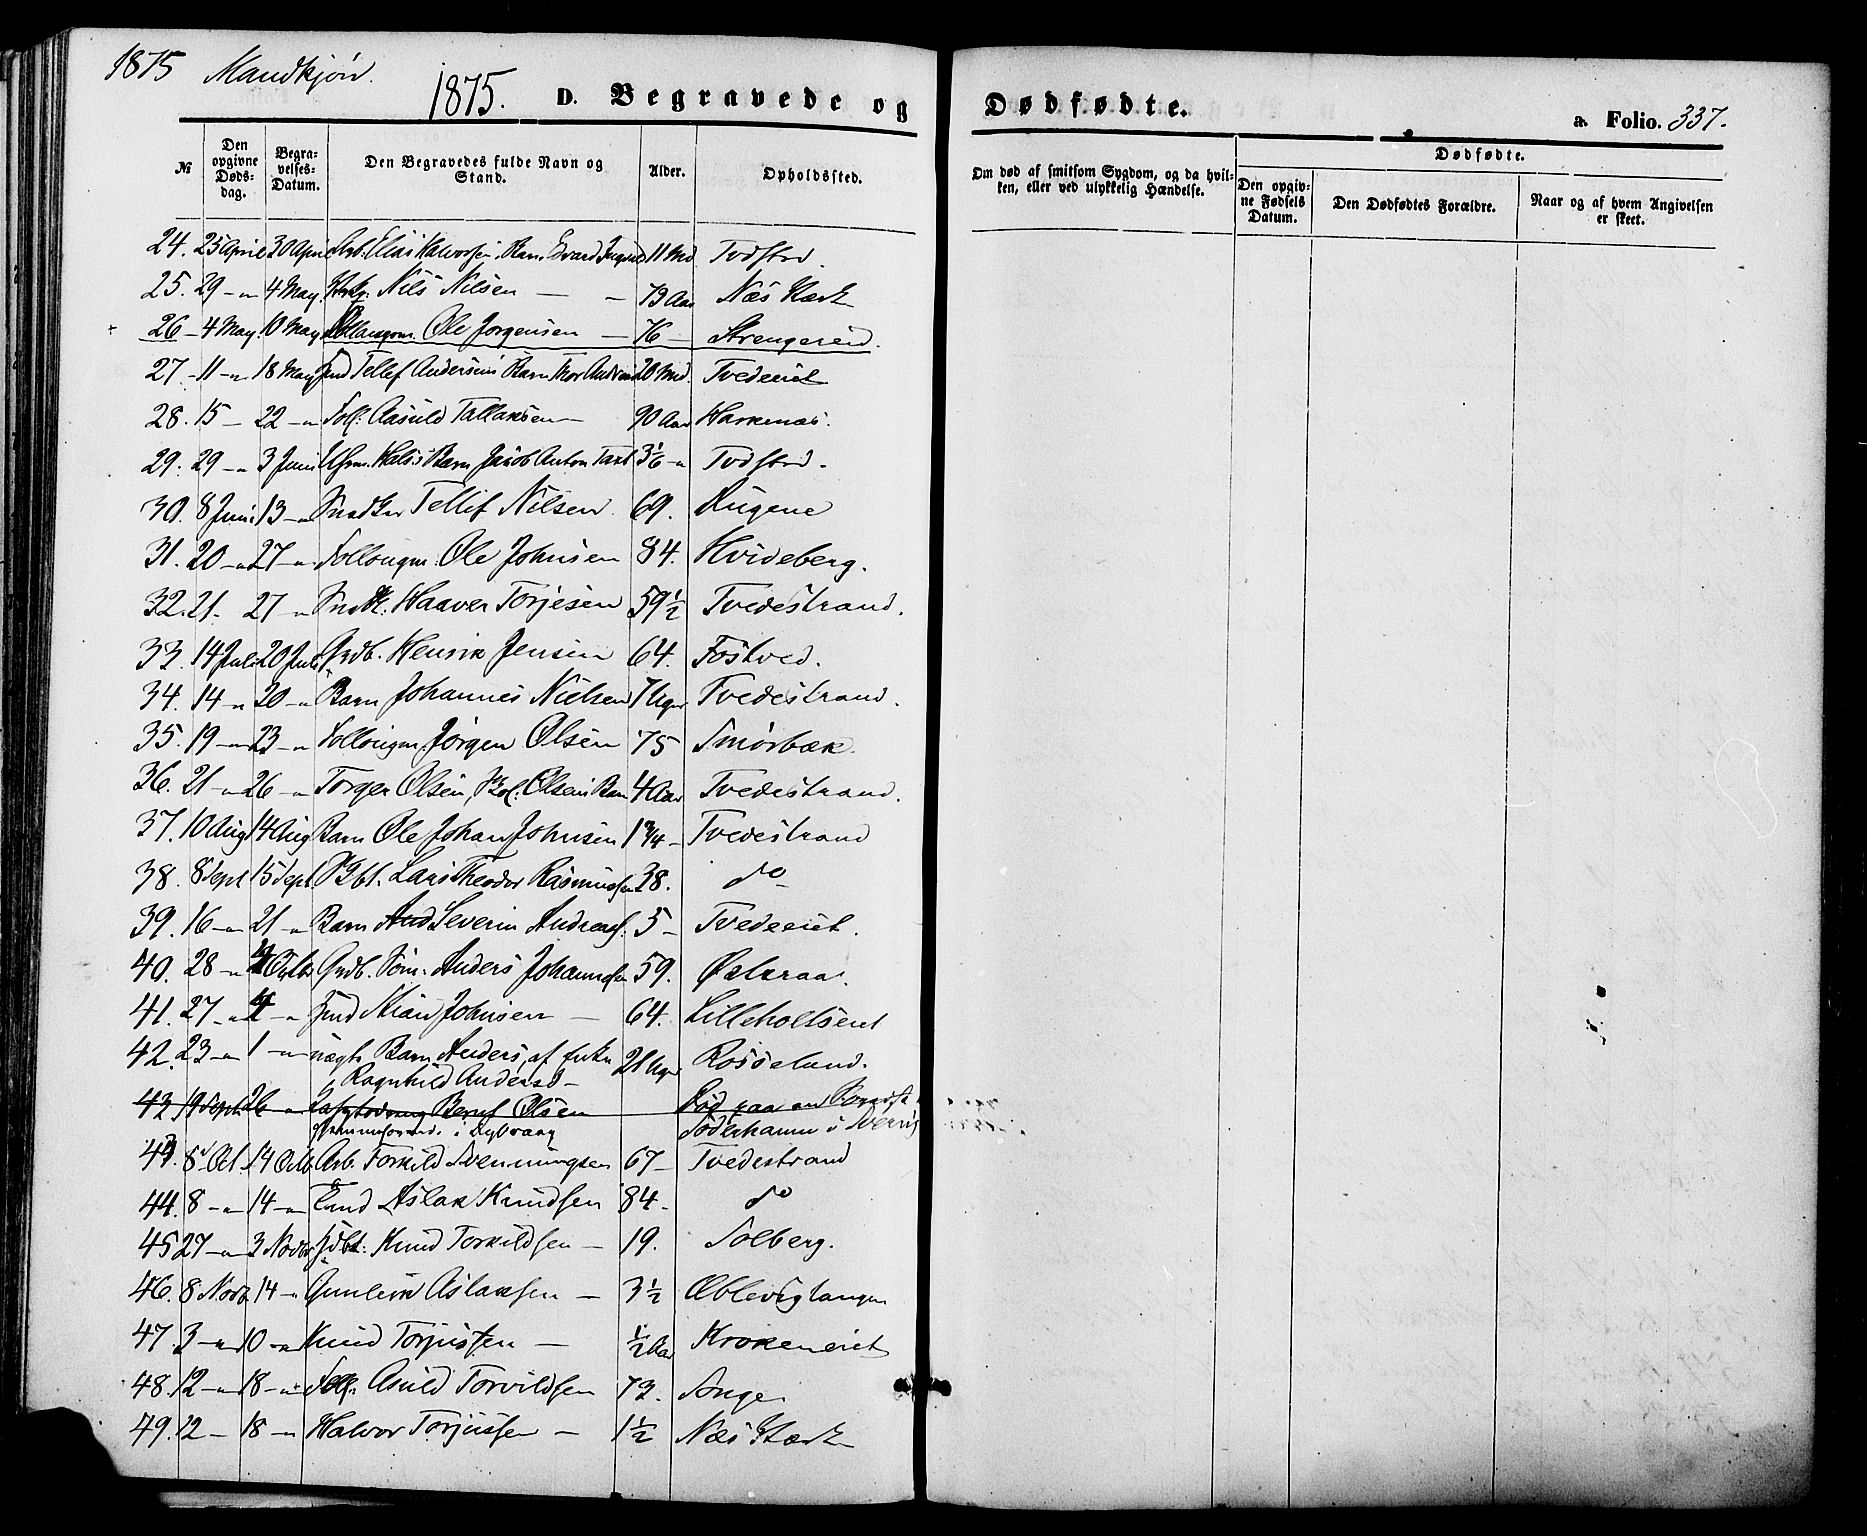 1875 Mandkjøn.
1875. D. Begravede og Dødfødte. a. Folio. 337.
№ Den opgivne Døds-dag. Begra-velses-Datum. Den Begravedes fulde Navn og Stand. Alder. Opholdssted. Om død af smitsom Sygdom, og da hvil-ken, eller ved ulykkelig Hændelse. Dødfødte. Den opgiv-ne Fødsels Datum. Den Dødfødtes Forældre. Naar og af hvem Angivelsen er skeet.
24. 25 April 30 April Arb. Elias Halvorsen Barn Edvard 11 Md Tvdstrd.
25. 29 - " 4 May Nils Nilsen - - 73 Aar Næs Værk
26 - 4 May 10 May Ole Jørgensen - 76 - Strengereid.
27 - 11 - " 18 May Tellef Andersens Barn Thor 20 Md. Tvedeeiet
28. 15 - 22 - " Foll: Aasuld Tallaksen - 90 Aar Haskenæs.
29. 29 - " 3 Juni Barn Jakob Anton 3 1/6 - " Tvdstrd.
30. 8 Juni 13 - " Snedker Tellef Nilsen 69. Rugene
31. 20 - " 27 - " Ole Johnsen 84. Hvideberg.
32. 21. 27 - " Haaver Torjesen 59 1/2 Tvedestrand.
33. 14 Juli 20 Juli Grdb. Henrik Jensen 64. Fostved.
34. 14 - " 20 - " Barn Johannes Nielsen 7 Uger Tvedestrand.
35. 19 - " 23 - " Jørgen Olsen 75 Smørbæk.
36. 21 - " 26 - " Torger Olsen, Olsens Barn 4 Aar Tvedestrand.
37. 10 Aug 14 Aug Barn Ole Johan Johnsen 1 3/4 - Tvedestrand
38. 8 Sept 15 Sept Lars Theodor Rasmussen 38. do -
39. 16 - " 21 - " Barn And Severin Andreas. 5 - Tvedeeiet.
40. 28 - " Octbr Grdb. Søn: Anders Johannesen 59. Øxeraa.
41. 27 - " - " Johnsen - 64. Lilleholtseiet
42. 23 - " 1 - " uægte Barn Anders, af Enke Ragnhild Andersd - 2 Uger Rosseland.
43 19 Septr 26 - " Bernt Olsen
hjemmehørende i Dybvaag Død paa en Reise fra Söderhamn i Sverrig
43. 8 Oct. 14 Octb Arb. Torkild Svenningsen 67 - Tvedestrand
44. 8 - " 14 - " Aslak Knudsen 84. do
45 27 - " 3 Novbr Knud Torkildsen - 19. Solberg.
46. 8 Novbr 14 - " Gunleik Aslaksen - 3 1/2 Æblevigtangen
47. 3 - " 10 - " Knud Torjussen - 1/2 Aar Krokeneiet
48. 12 - " 18 - " Foll. Asuld Torvildsen 73. Songe
49. 12 - 18 - " Halvor Torjussen - 1 1/2 Næs Værk